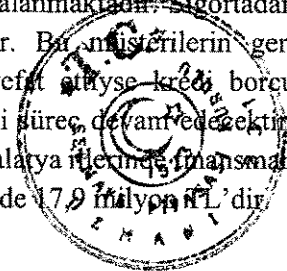 alanmaktadır. Sigortadan
r. Bu müşterilerin ger
vefat ettiyse kredi borcu
i süreç devam edecektir
alatya illerinde finansman
de 17,9 milyon TL'dir
T.C.